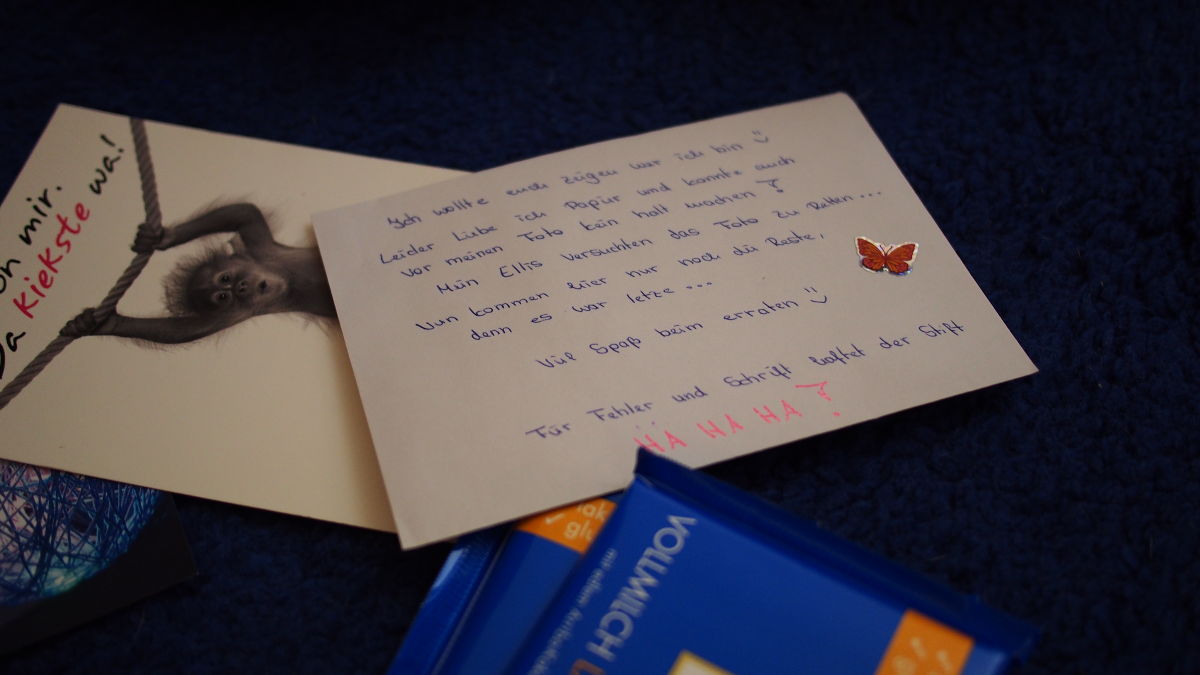 on mir.
Da kiekste wa!
Ich wollte euch zeigen wer ich bin
Leider Liebe ich Papier und konnte auch
vor meinen Foto kein halt machen!
Mein Ellis versuchten das Foto zu Reten...
Nun kommen hier nur noch die Reste,
denn es war letze...
Viel Spaß beim erraten
Für Fehler und Schrift haftet der Stift
HA HA HA!
VOLLMILCH